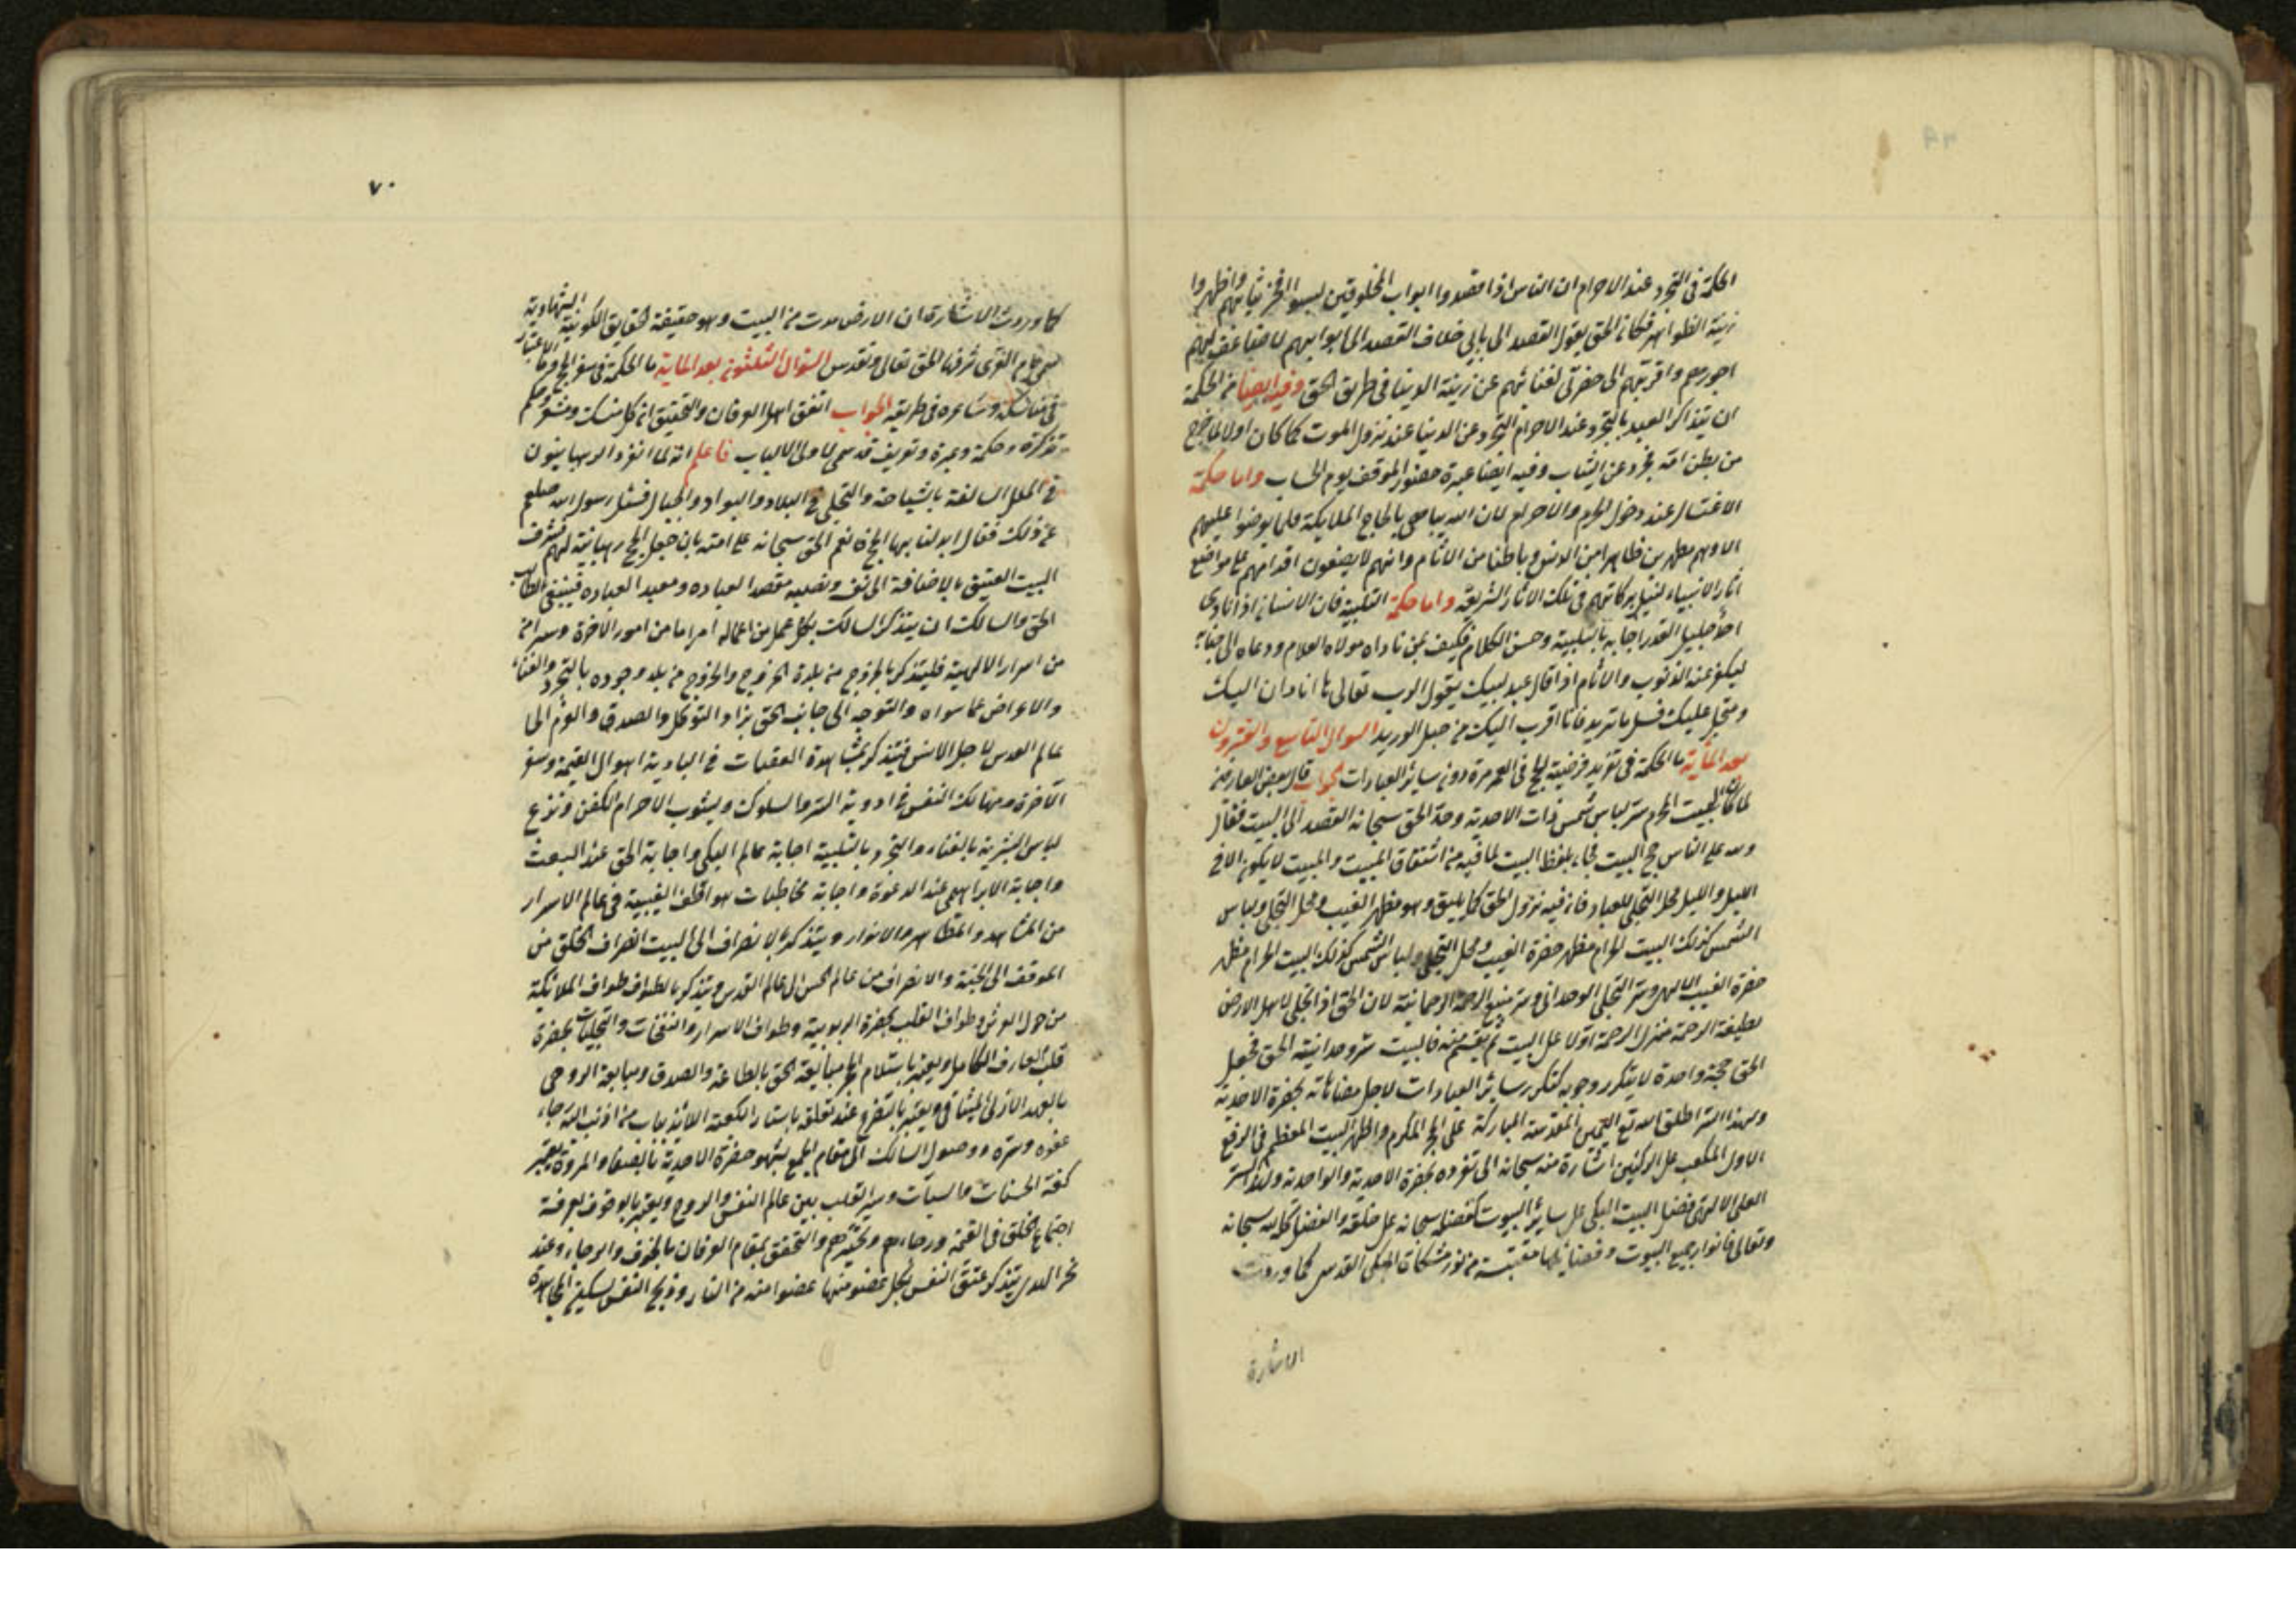 الحكمة فى التجرد عند الاحرام ان الناس اذا قصدوا ابواب المخلوقين لبسوا افخر ثيابهم واظهروا
زينة الظواهر فكان الحق يقول القصد الى بابى خلاف القصد الى ابوابهم لاضاعف لهم
اجورهم واقربهم الى حضرتى لغنائهم عن زينة الدنيا فى طريق الحق وفيه ايضا من الحكمة
ان يتذاكر العبد بالتجرد عند الاحرام التجرد عن الدنيا عند نزول الموت كما كان اولا لما خرج
من بطن امه مجرد عن الثياب وفيه ايضا عبرة حضور الموقف يوم الحساب واما حكمة
الاغتسال عند دخول الحرم والاحرام لان الله يباهى بالحاج الملايكة فلم يعرضوا عليهم
الا وهم مطهرين ظاهرا من الدنس وباطنا من الاثام وانهم لا يضعون اقدامهم على مواضع
اثار الانبياء لنيل بركاتهم فى تلك الاثار الشريفة واما حكمة التلبية فان الانسان اذا ناداى
احد جليل القدر اجابه بالتلبية وحسن الكلام فكيف بمن ناداه مولاه العلام ودعاه الى جنابه
ليكفر عنه الذنوب والاثام اذا قال عبد لبيك يقول الرب تعالى ها انا دان اليك
ومتجل عليك فسل ما تريد فانا اقرب اليك من حبل الوريد السوال التاسع والعشرون
بعد الماية ما الحكمة فى فرضية الحج فى العمر مرة دون ساير العبادات الجواب قال بعض العارفين
لما كان البيت الحرم ستر لباس شمس ذات الاحدية وحد الحق سبحانه القصد الى البيت فقال
ولله على الناس حج البيت فجاء بلفظ البيت لما فيه من اشتقاق المبيت والمبيت لا يكون الا فى
الليل والليل محل التجلى للعباد فان فيه نزول الحق كما يليق وهو مظهر الغيب ومحل التجلى ولباس
الشمس كذلك البيت الحرام مظهر حضرة الغيب ومحل التجلى ولباس الشمس كذلك البيت الحرام مظهر
حضرة الغيب الالهى وستر التجلى الوحدانى وستر منبع الرحمة الرحمانية لان الحق اذا تجلى لاهل الارض
بطيفة الرحمة منزل الرحمة اولا على البيت ثم يقسم منه فالبيت ستر وحدانية الحق فجعل
الحق حجة واحدة لا يتكرر وجوبه كتكرر ساير العبادات لاجل مضاهاته لحضرة الاحدية
ولهذا الستر اطلق اسم اليمين المقدسة المباركة على الحجر المكرم واظهر البيت المعظم فى الرفيع
الاول المكعب على الركنين اشارة منه سبحانه الى تفرده بحضرة الاحدية والواحدية ولهذا الستر
العلى الالهى فضل البيت المكى على ساير البيوت كفضله سبحانه على خلقه والفضل كله لله سبحانه
وتعالى فانوار جميع البيوت وفضايلها مقتبسة من نور مشكاة المكى القدس كما وردت
الاشارة
٧٠
كما وردت الاشارة ان الارض مدت من البيت وهو حقيقة الحقايق الكونية الشهادية
سمى بام القرى شرفها الحق تعالى وتقدس السوال الثلثون بعد الماية ما الحكمة فى سفر الحج وما الاعتبار
فى مناسكه وشاعره فى طريقه الجواب اتفق اهل العرفان والتحقيق ان كل منسك ومشعر وحكم
تذكرة وحكمة وعبرة وتعريف قدسى لاولى الالباب فاعلم انه لما انفرد الرهبانيون
فى الملل السالفة بالسياحة والتخلى فى البلاد والبواد والجبال فسئل رسول الله صلعم
عن ذلك فقال ابدلنا بها الحج فانعم الحق سبحانه على امته بان جعل الحج رهبانية لهم فشرف
البيت العتيق بالاضافة الى نفسه ونصبه مقصدا لعباده ومعبد العباده فينبغى لطالب
الحق والسالك ان يتذكر السالك بكل عمل من اعماله امرا ما من امور الاخرة وسرا من
من اسرار الالهية فليتذكر بالخروج من بلدة الخروج والخروج من بلد وجوده بالتجرد والفناء
والاعراض عما سواه والتوجه الى جانب الحق بزاد التوكل والصدق والعزم الى
عالم القدس لاجل الانس فيتذكر بمشاهدة العقبات فى البادية اهوال القيمة وسفر
الاخرة ومهالك النفس فى اودية الستر والسلوك وبثوب الاحرام الكفن ونزع
لباس البشرية بالفناء والتجرد بالتلبية اجابة عالم الملكى واجابة الحق عند البعث
واجابة الابراهيمى عند الدعوة واجابة مخاطبات هواتف الغيبية فى عالم الاسرار
من المشاهد والمظاهر والانوار ويتذكر بالانصراف الى البيت انصراف الخلق من
الموقف الى الجنة والانصراف من عالم الحس الى عالم القدس ويتذكر بالطواف طواف الملائكة
من حول العرش وطواف القلب بحضرة الربوبية وطواف الاسرار والنفخات والتجليات بحضرة
قلب العارف الكامل ويعتبر باستلام الحجر مبايعة الحق بالطاعة والصدق ومبايعة الروحى
بالعهد الازلى الميثاقى ويعتبر بالتضرع عند تعلقه باستار الكعبة اللائذ بباب من اذنب اليه رجاء
عفوه وستره ووصول السالك الى مقام الجمع بشهود حضرة الاحدية بالصفا والمروة يعتبر
كفة الحسنات والسيآت وسير القلب بين عالم النفس والروح ويعتبر بالوقوف بعرفة
اجتماع الخلق فى القيمة ورجاءهم وتحيرهم والتحقق بمقام العرفان بالخوف والرجاء وعند
نحر الهدى يتذكر عتق النفس بكل عضو منها عضوا منه من النار وذبح النفس بسكين المجاهدة